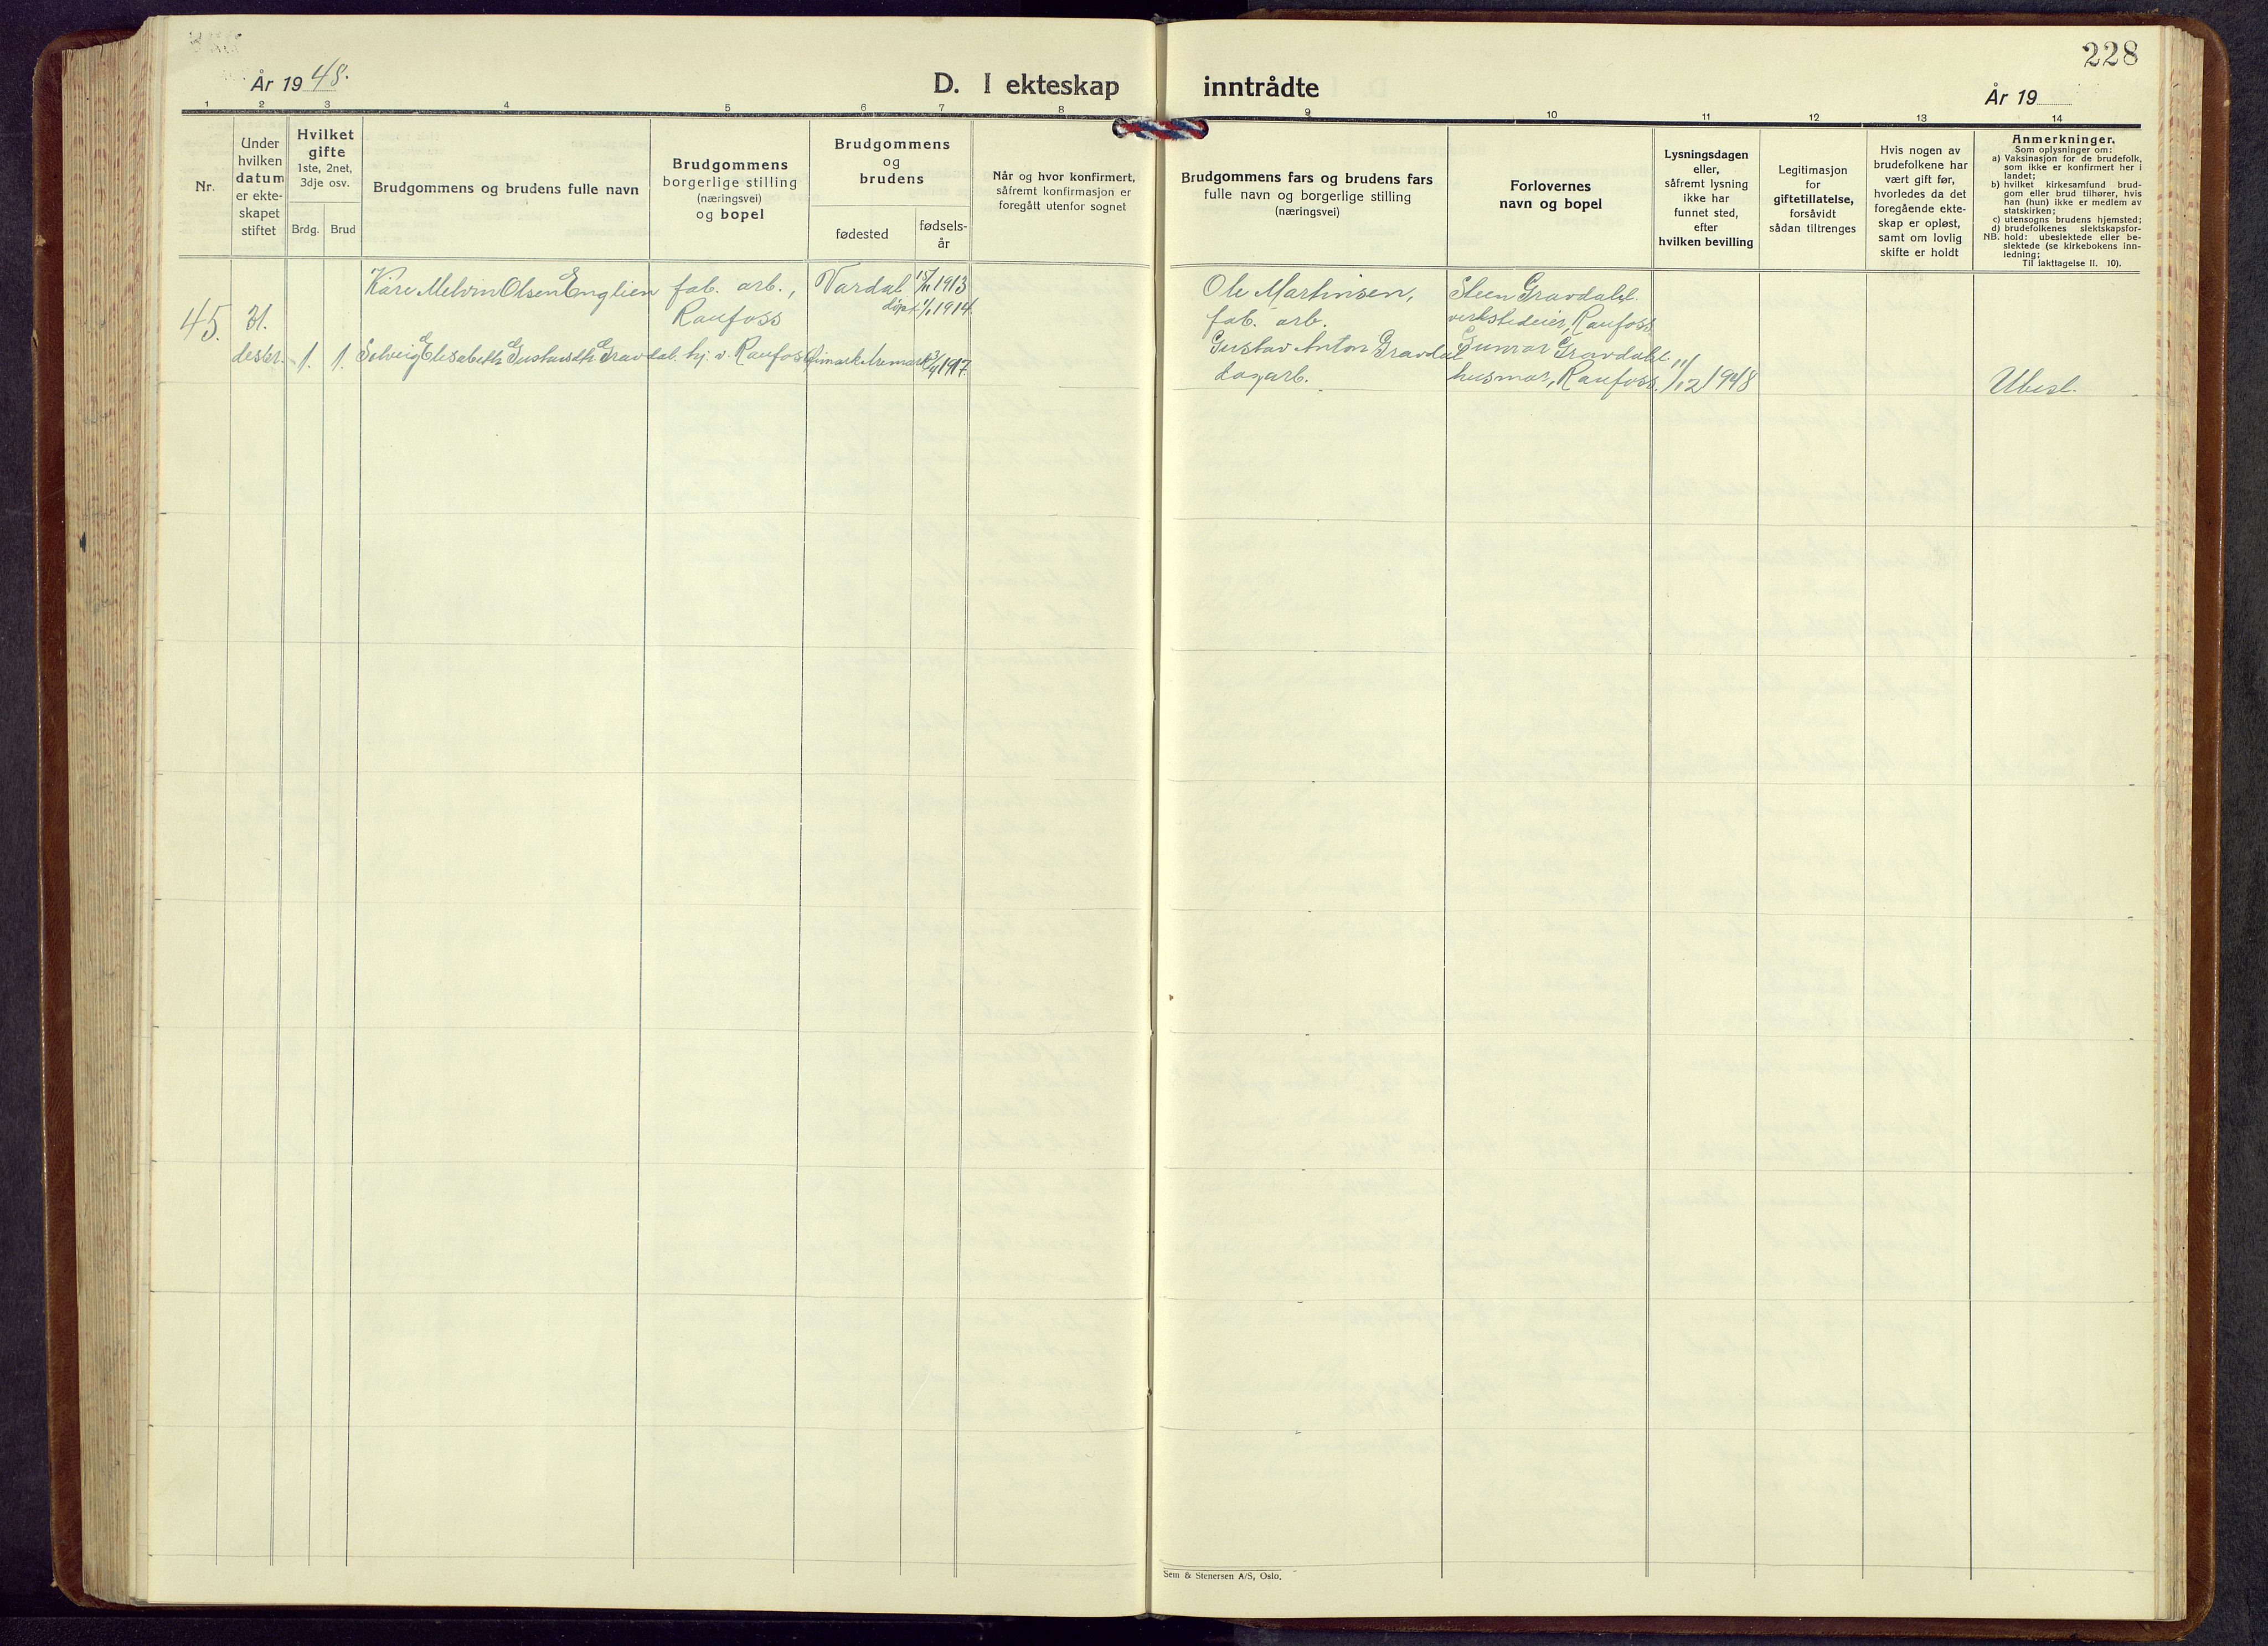 228
År 1948.
D. I ekteskap inntrådte
År 19
1 2 3 4 5 6 7 8 9 10 11 12 13 14
Nr.
Under
hvilken
datum
er ekte-
skapet
stiftet
Hvilket
gifte
1ste, 2net,
3dje osv.
Brdg. Brud
Brudgommens og brudens fulle navn
Brudgommens
borgerlige stilling
(næringsvei)
og bopel
Brudgommens
og
brudens
fødested
fødsels-
år
Når og hvor konfirmert,
såfremt konfirmasjon er
foregått utenfor sognet
Brudgommens fars og brudens fars
fulle navn og borgerlige stilling
(næringsvei)
Forlovernes
navn og bopel
Lysningsdagen
eller,
såfremt lysning
ikke har
funnet sted,
efter
hvilken bevilling
Legitimasjon
for
giftetillatelse,
forsåvidt
sådan tiltrenges
Hvis nogen av
brudefolkene har
vært gift før,
hvorledes da det
foregående ekte-
skap er opløst,
samt om lovlig
skifte er holdt
Anmerkninger.
Som oplysninger om:
a) Vaksinasjon for de brudefolk,
som ikke er konfirmert her i
landet;
b) hvilket kirkesamfund brud-
gom eller brud tilhører, hvis
han (hun) ikke er medlem av
statskirken;
c) utensogns brudens hjemsted;
d) brudefolkenes slektskapsfor-
NB. hold: ubeslektede eller be-
slektede (se kirkebokens inn-
ledning;
Til iakttagelse II. 10).
45.
31.
desbr.
1. 1.
Kåre Melvin Olsen Englien
fab. arb.,
Raufoss
Vardal
1913
døpt 1/1 1914.
Solveig Elisabeth Gravdal. hj. v. Raufoss
1917.
Ole Martinsen,
fab. arb.
Gustav Anton Gravdal
dagarb.
Steen Gravdahl.
Raufoss.
Gunvor Gravdahl.
husmor, Raufoss.
11/12 1948
Ubesl.
Sem & Stenersen A/S, Oslo.